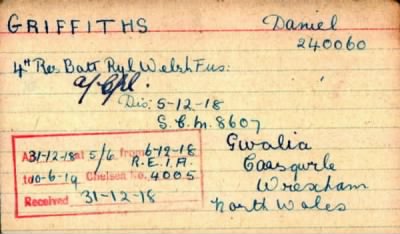 GRIFFITHS Daniel
240060
4th Res Batt Ryl Welsh Fus:
a/Cpl.
Dis: 5-12-18
S.C.M. 8607
Gwalia
Caergwrle
Wrexham
North Wales
31-12-18 at 5/6 from 6-12-18
R.E.I.A.
to 10-6-19 Chelsea No. 4005
Received 31-12-18